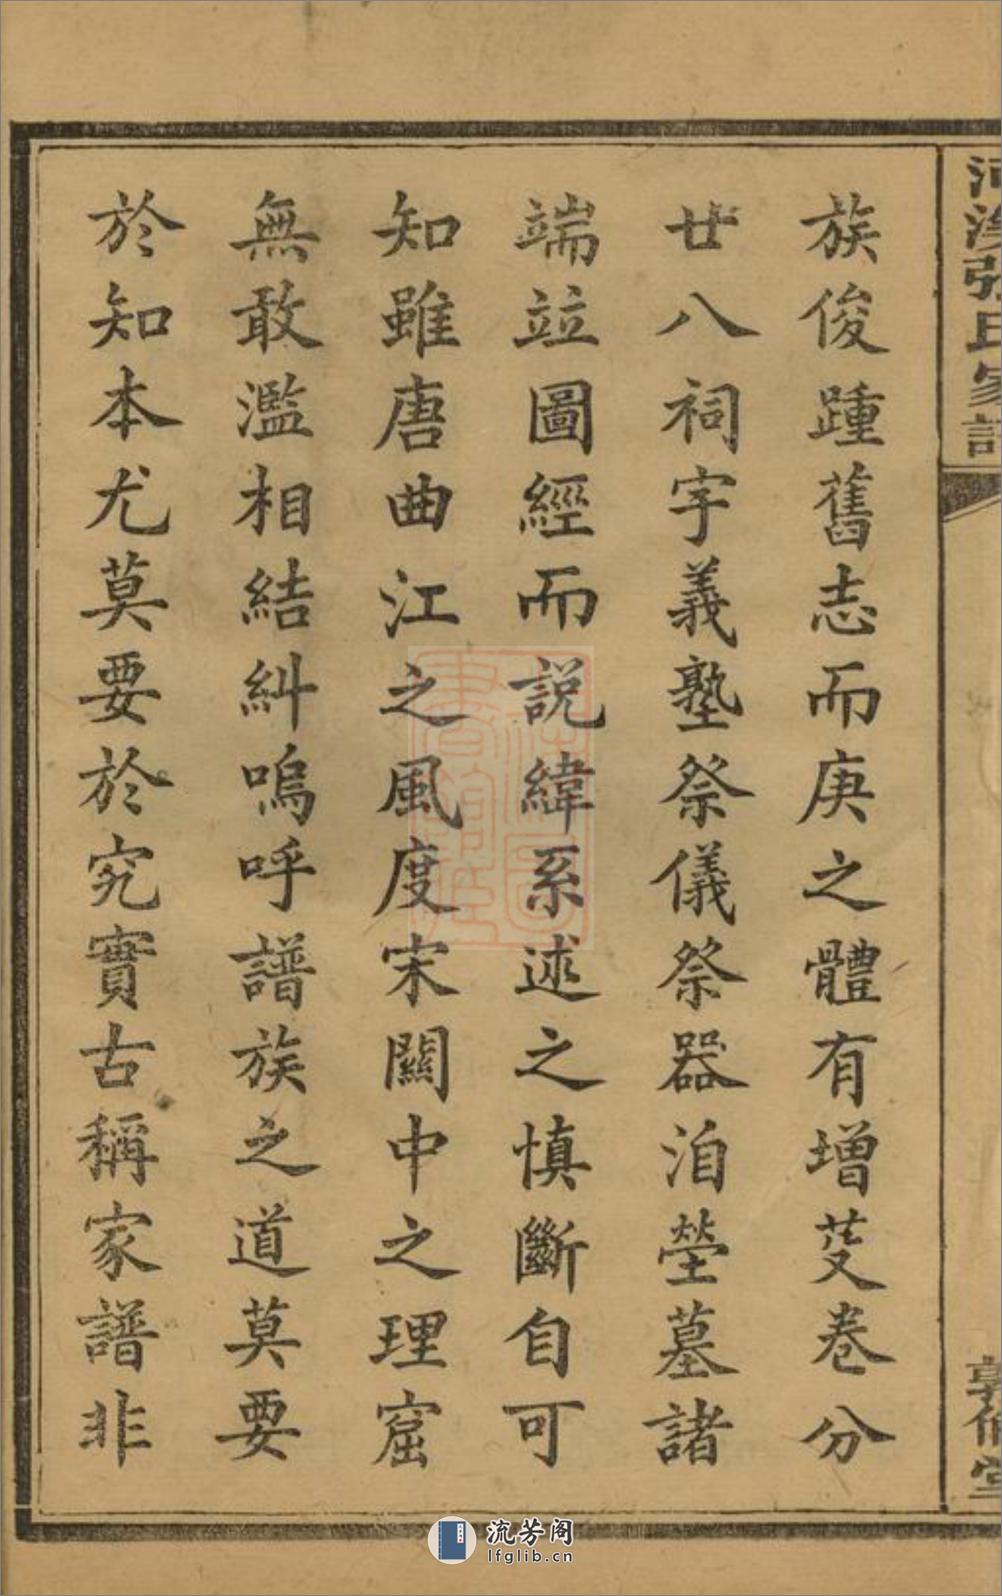 族俊踵舊志而庚之體有增芟卷分
廿八祠宇義塾祭儀祭器洎塋墓諸
端竝圖經而說緯系述之慎斷自可
知雖唐曲江之風度宋關中之理窟
無敢濫相結糾嗚呼譜族之道莫要
於知本尤莫要於究實古稱家譜非
張氏家譜
敦倫堂
流芳阁
lfglib.cn